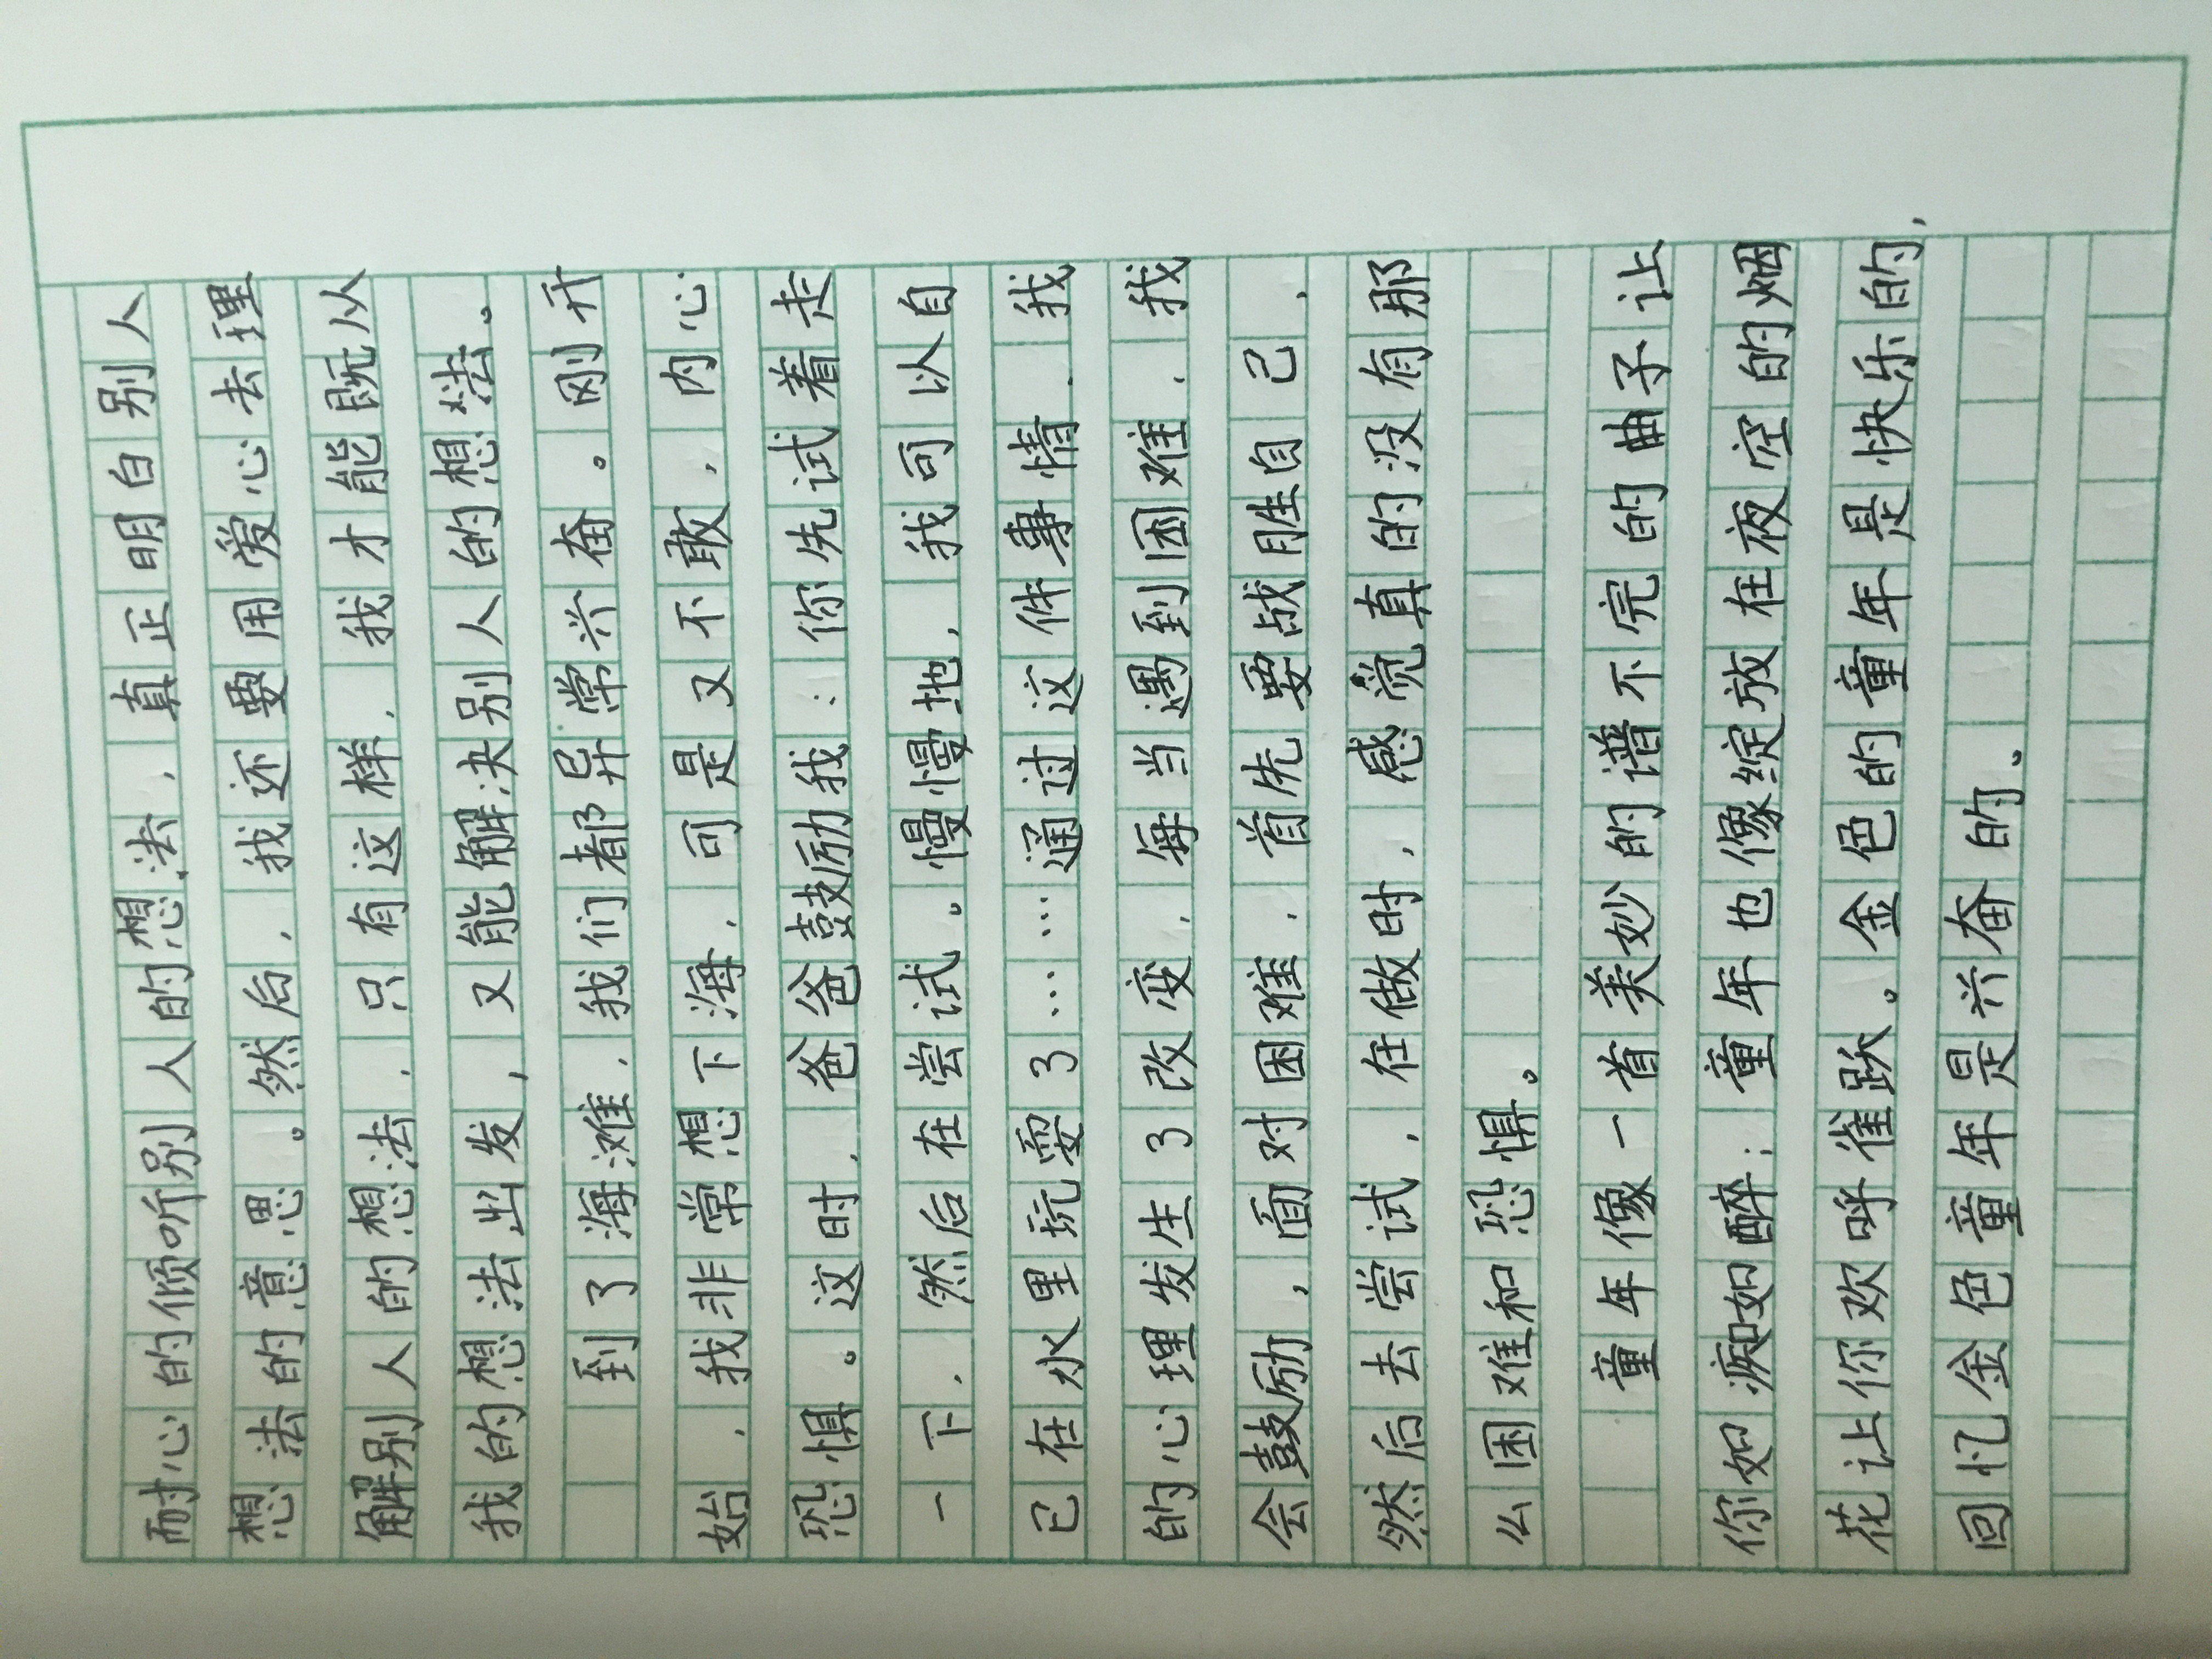 耐心的倾听别人的想法，真正明白别人
想法的意思。然后，我还要用爱心去理
解别人的想法，只有这样，我才能既从
我的想法出发，又能解决别人的想法。
到了海滩，我们都异常兴奋。刚开
始，我非常想下海，可是又不敢，内心
恐惧。这时，爸爸鼓励我：你先试着走
一下，然后在尝试。慢慢地，我可以自
已在水里玩耍了……通过这件事情，我
的心理发生了改变，每当遇到困难，我
会鼓励，面对困难，首先要战胜自己，
然后去尝试，在做时，感觉真的没有那
么困难和恐惧。
童年像一首美妙的谱不完的曲子让
你如痴如醉；童年也像绽放在夜空的烟
花让你欢呼雀跃。金色的童年是快乐的，
回忆金色童年是兴奋的。